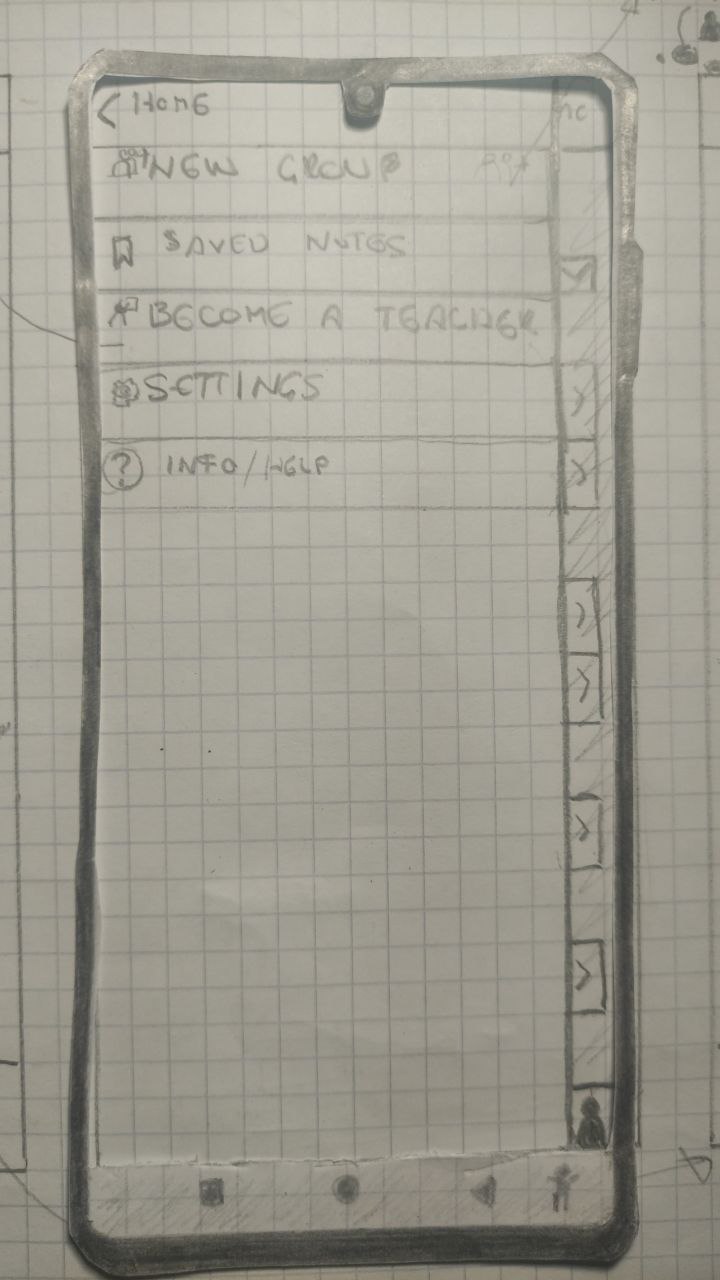 < Home
nc
NEW GROUP
SAVED NOTES
BECOME A TEACHER
SETTINGS
? INFO/HELP